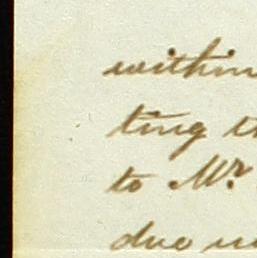 within
ting th
to Mr.
due